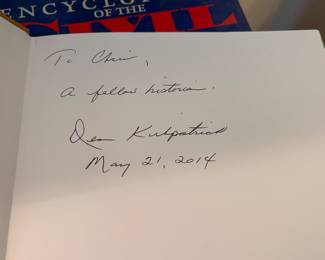 ENCYCLOP
OF THE
CIVIL
To Chris,
A fellow historian.
Dean Kirkpatrick
May 21, 2014